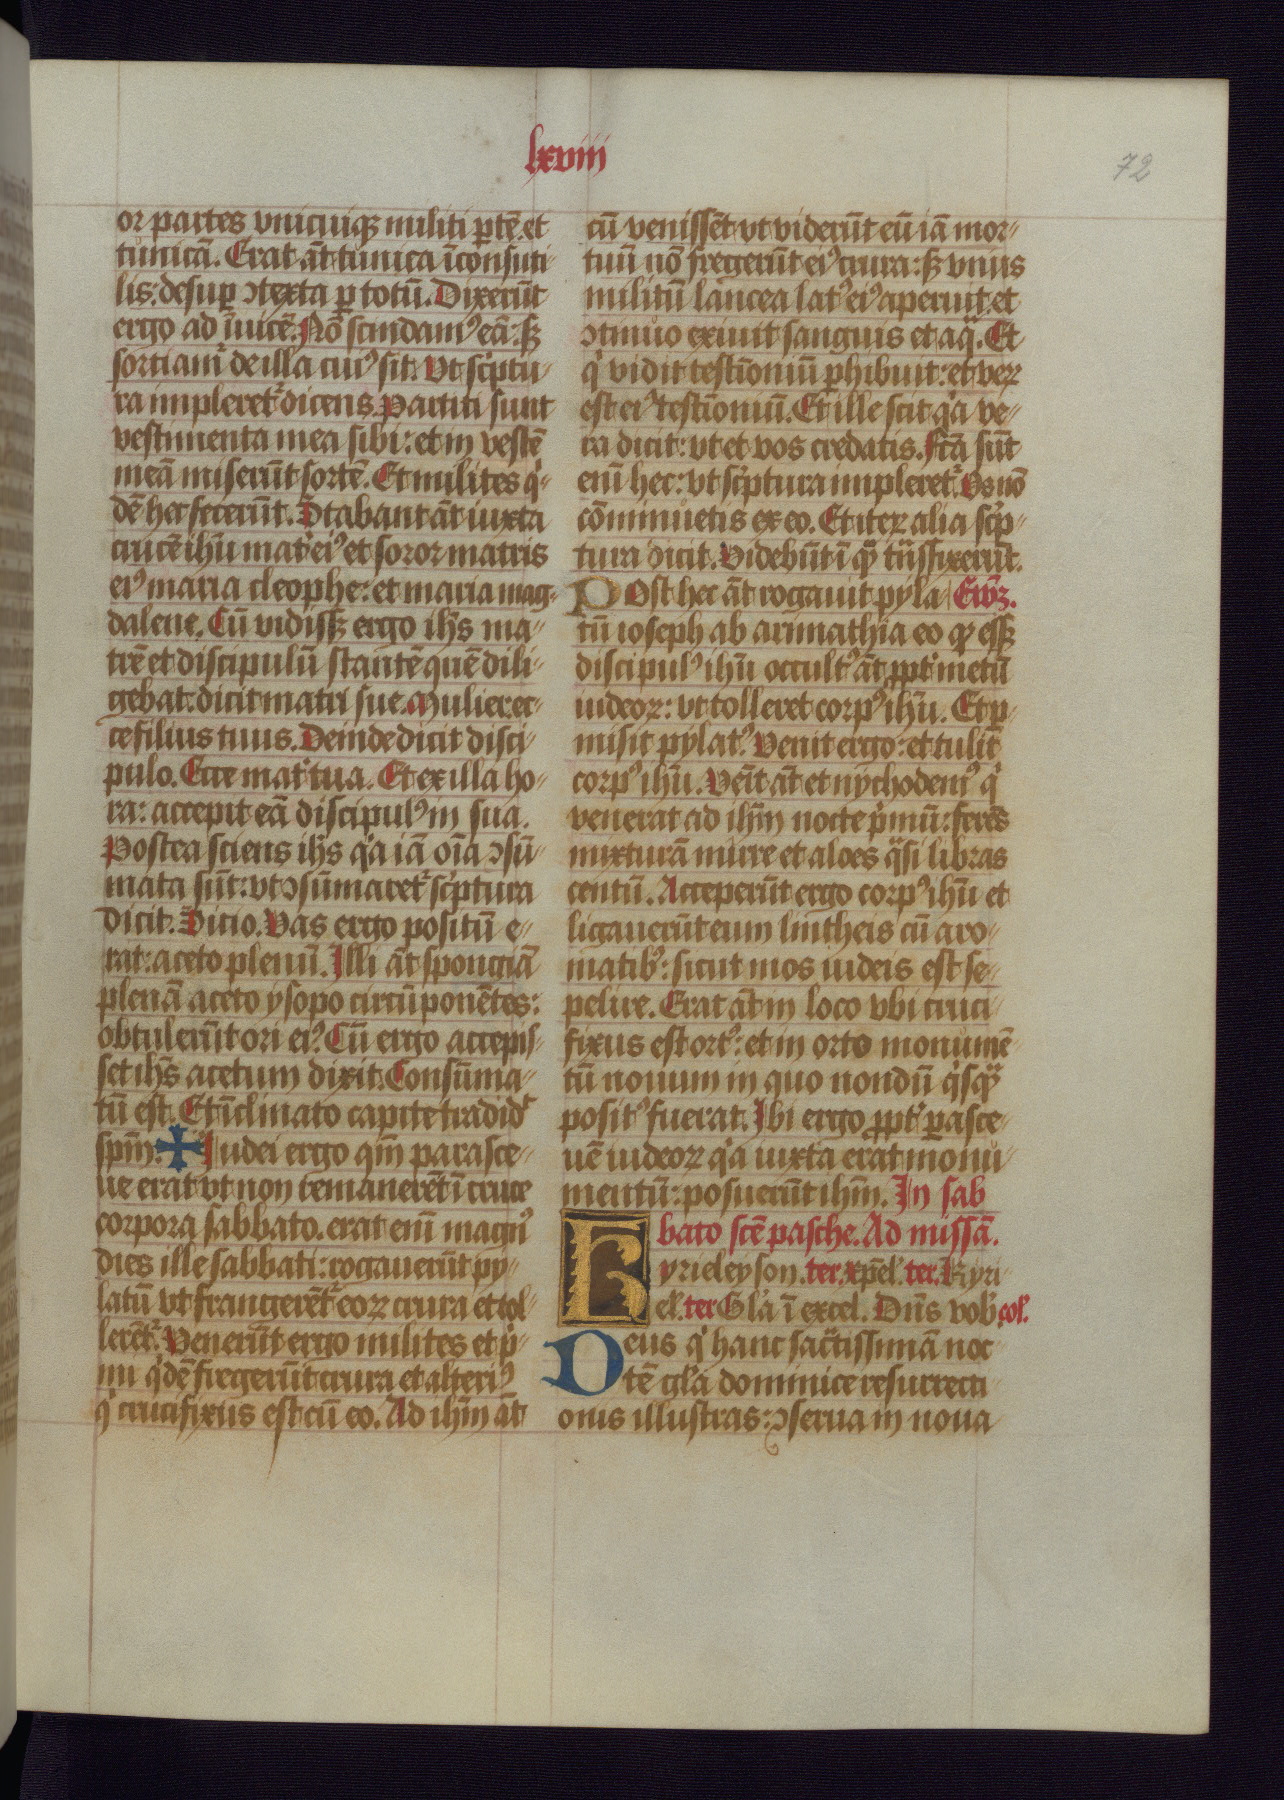 lxviii
72
or partes vnicuiqꝫ militi ꝑtē. et
tunicā. Erat āt tunica īconsuti-
lis: desuꝑ ↄtexta ꝑ totū. Dixerūt
ergo ad īuicē. Nō scindamꝰ eā: sꝫ
sortiamᷣ de illa cuiꝰ sit. Vt sc̓ptu-
ra impleretᷣ dicens. Partiti sunt
vestimenta mea sibi: et in vestē
meā miserūt sortē. Et milites q̓-
dē hec fecerūt. Stabant āt iuxta
crucē ihū mat̓ eiꝰ et soror matris
eiꝰ maria cleophe: et maria mag-
dalene. Cū vidissꝫ ergo ihs̄ ma-
trē et discipulū stantē quē dili-
gebat. dicit matri sue. Mulier ec-
ce filius tuus. Deinde dicit disci-
pulo. Ecce mat̓ tua. Et ex illa ho-
ra: accepit eā discipulꝰ in sua.
Postea sciens ihs̄ q̓a iā oīa ↄsū-
mata sūt: vt ↄsūmaretᷣ sc̓ptura
dicit. Sitio. Vas ergo positū e-
rat: aceto plenū. Illi āt spongiā
plenā aceto ysopo circūponētes:
obtulerūt ori eiꝰ. Cū ergo accepis-
set ihs̄ acetum dixit. Consūma-
tū est. Et īclinato capite tradid̓
spm̄. Iudei ergo qm̄ parasce-
ue erat vt non remanerēt ī cruce
corpora sabbato. erat enī magnꝰ
dies ille sabbati: rogauerūt py-
latū vt frangerēt᷑ eoꝝ crura et tol-
lerēt᷑. Venerūt ergo milites et p̓-
mi q̓dē fregerūt crura et alteriꝰ
q̓ crucifixus est cū eo. Ad ihm̄ āt
cū venissēt vt viderūt eū iā mor-
tuū nō fregerūt eiꝰ crura: sꝫ vnus
militū lancea latꝰ eiꝰ aperuit. et
ↄtinuo exiuit sanguis et aq̄. Et
q̓ vidit testīoniū ꝑhibuit: et veꝝ
est eiꝰ testīoniū. Et ille scit q̓a ve-
ra dicit: vt et vos credatis. Fcā sūt
enī hec: vt sc̓ptura impleretᷣ. Os nō
cōminuetis ex eo. Et iteꝝ alia sc̓p-
tura dicit. Videbūt ī quē trāsfixerūt.
Post hec āt rogauit pyla Ewꝫ.
tū ioseph ab arimathia eo ꝙ essꝫ
discipulꝰ ihū occultꝰ āt ꝓpt̓ metū
iudeoꝝ: vt tolleret corpꝰ ihū. Et ꝑ-
misit pylatꝰ. Venit ergo: et tulit
corpꝰ ihū. Venīt āt et nychodemꝰ q̓
venerat ad ihm̄ nocte p̓mū: ferēs
mixturā mirre et aloes q̄si libras
centū. Acceperūt ergo corpꝰ ihū et
ligauerūt eum lintheis cū aro-
matibꝰ: sicut mos iudeis est se-
pelire. Erat āt in loco vbi cruci-
fixus est ortꝰ: et in orto monumē-
tū nouum in quo nondū q̓sq̄
positꝰ fuerat. Ibi ergo ꝓpt̓ ꝑasce-
uē iudeoꝝ q̓a iuxta erat monu-
mentū: posuerūt ihm̄. In sab
bato scē pasche. Ad missā.
Kyrieleyson. ter. xpēl. ter. Kyri-
el. ter Glā ī excel. Dn̄s vob̓ coł.
Deus q̓ hanc sac̄tissimā noc-
tē glā dominice resurrecti-
onis illustras: ↄserua in noua